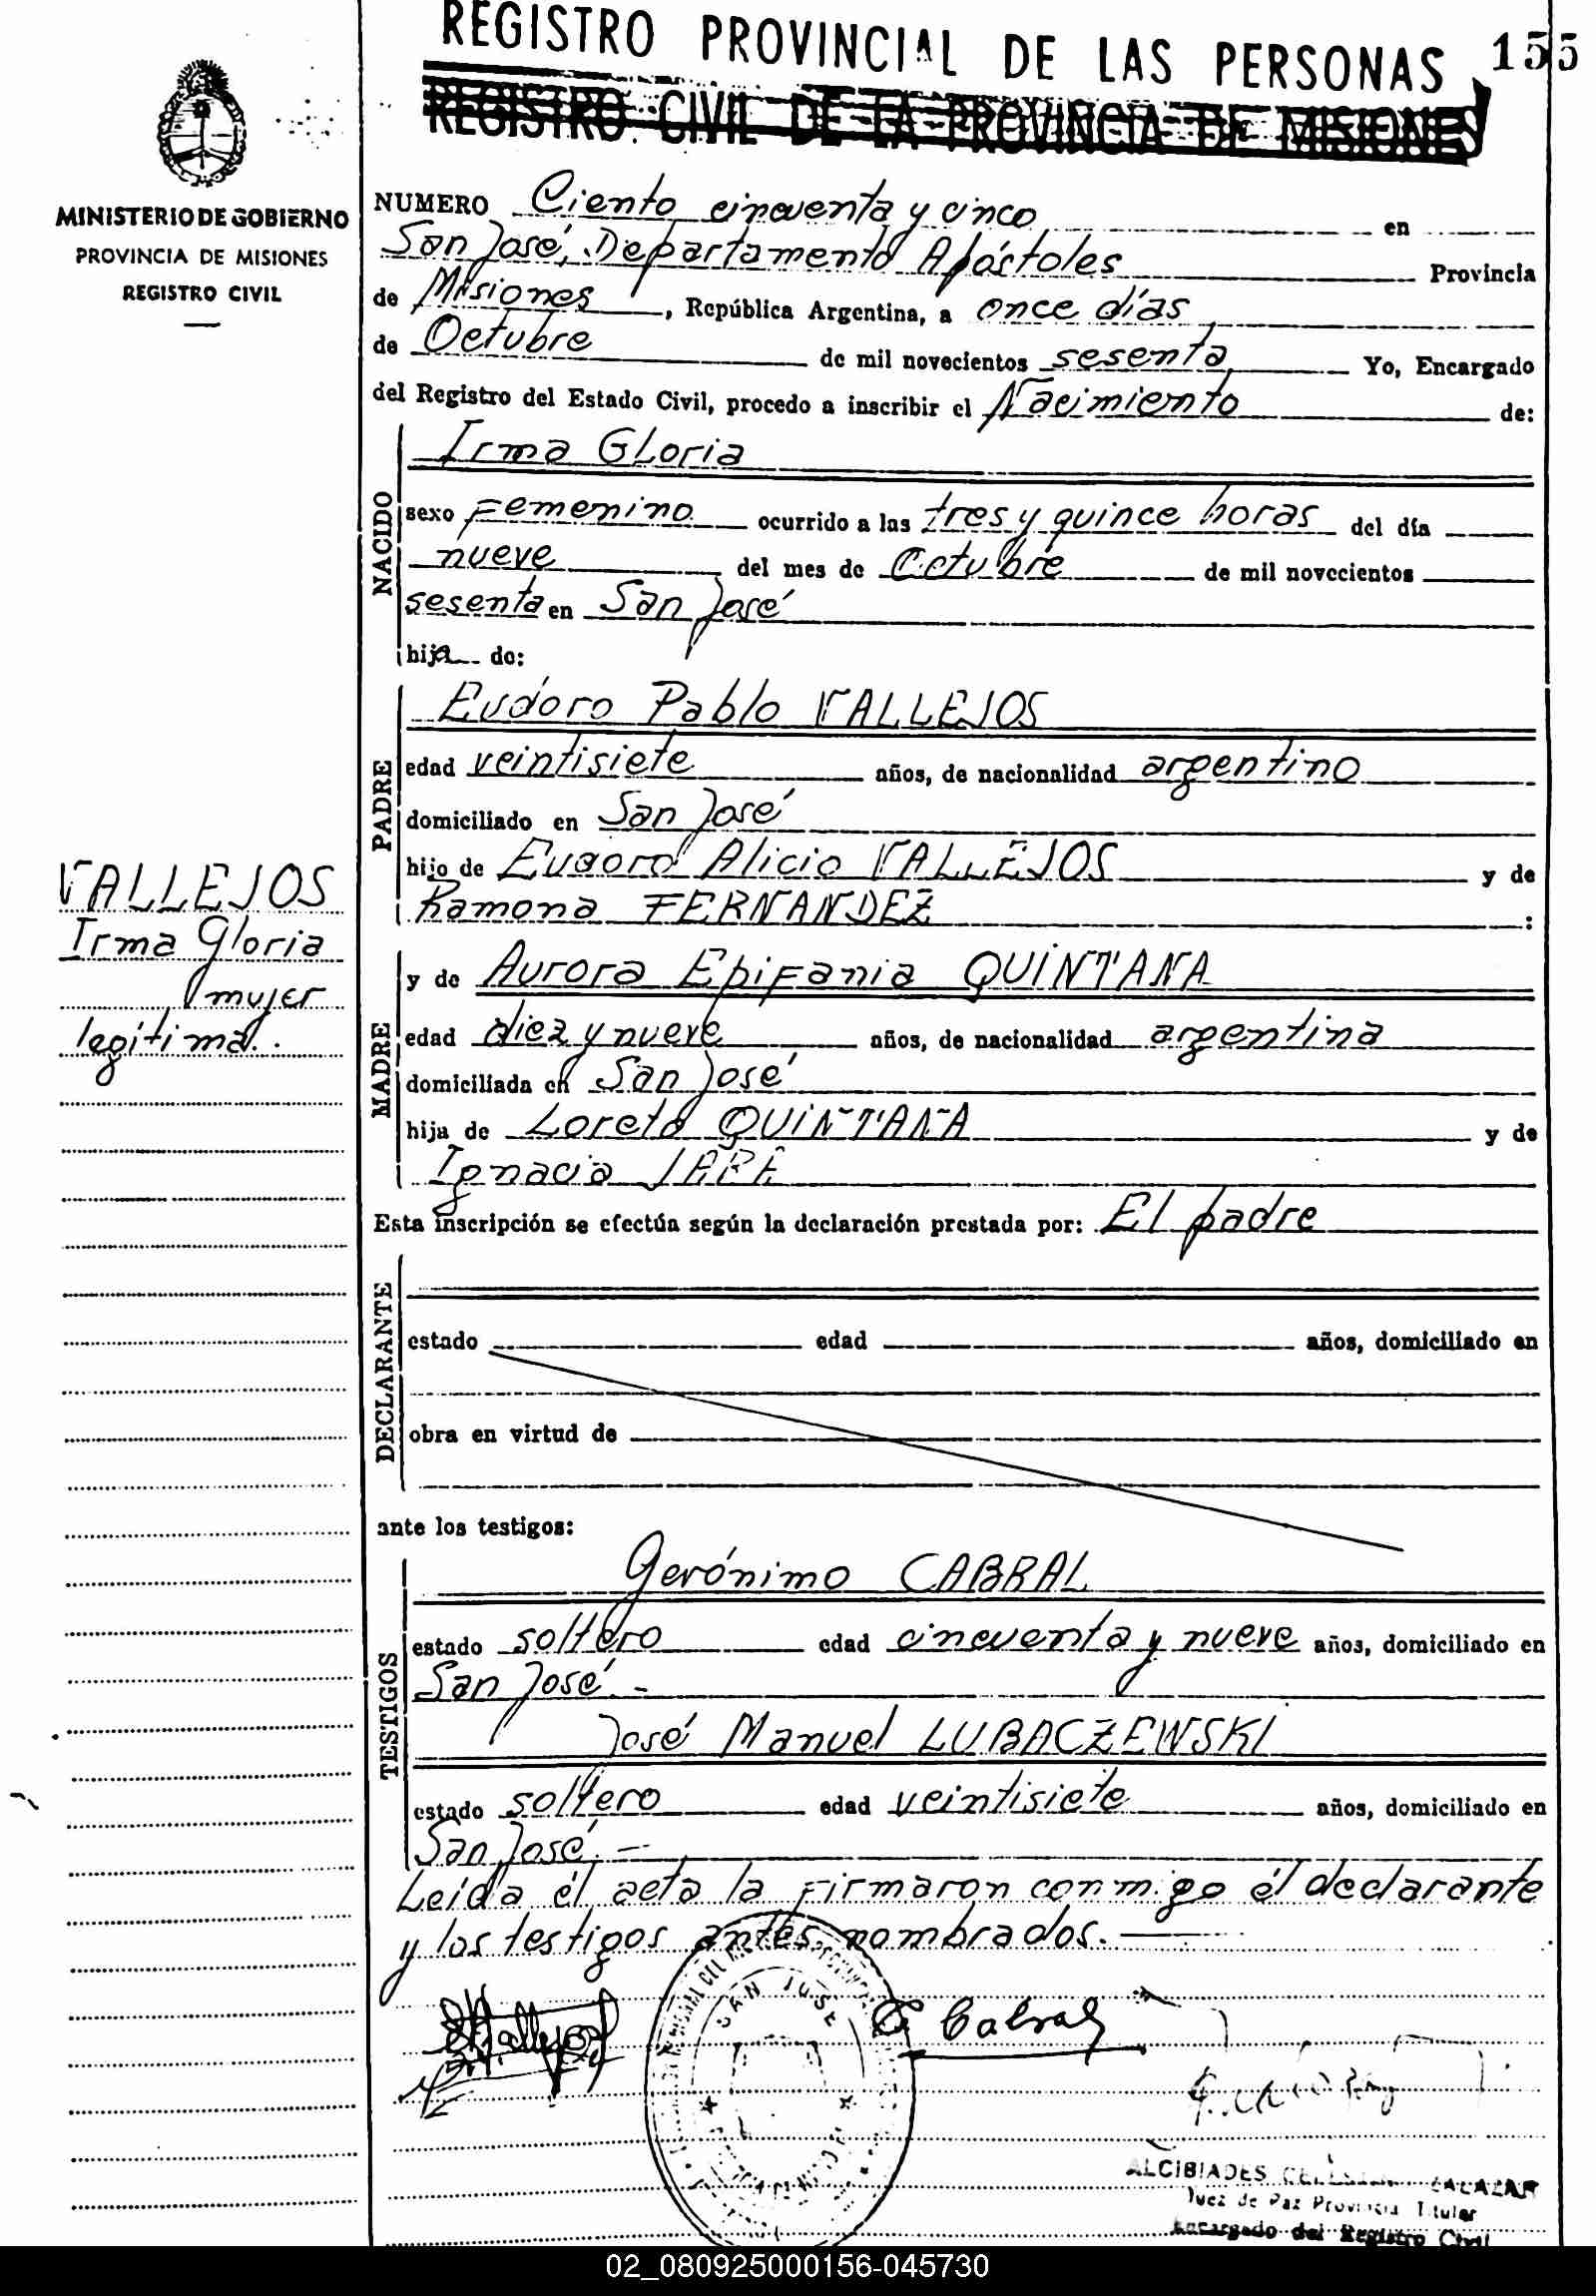 REGISTRO PROVINCIAL DE LAS PERSONAS 155
REGISTRO CIVIL DE LA PROVINCIA DE MISIONES
MINISTERIO DE GOBIERNO
PROVINCIA DE MISIONES
REGISTRO CIVIL
NUMERO Ciento cincuenta y cinco en
San José, Departamento Apóstoles Provincia
de Misiones, República Argentina, a once días
de Octubre de mil novecientos sesenta Yo, Encargado
del Registro del Estado Civil, procedo a inscribir el Nacimiento de:
NACIDO
Irma Gloria
sexo Femenino ocurrido a las tres y quince horas del día
nueve del mes de Octubre de mil novecientos
sesenta en San José
hija de:
PADRE
Eudoro Pablo VALLEJOS
edad veintisiete años, de nacionalidad argentino
domiciliado en San José
hijo de Eudoro Alicio VALLEJOS y de
Ramona FERNANDEZ :
VALLEJOS
Irma Gloria
mujer
legítima.
MADRE
y de Aurora Epifania QUINTANA
edad diez y nueve años, de nacionalidad argentina
domiciliada en San José
hija de Loreto QUINTANA y de
Ignacia
Esta inscripción se efectúa según la declaración prestada por: El padre
DECLARANTE
estado edad años, domiciliado en
obra en virtud de
ante los testigos:
TESTIGOS
Gerónimo CABRAL
estado soltero edad cincuenta y nueve años, domiciliado en
San José.-
José Manuel LUBACZEWSKI
estado soltero edad veintisiete años, domiciliado en
San José.-
Leída él acta la firmaron conmigo él declarante
y los testigos antes nombrados.
SAN JOSE
G. Cabral
ALCIBIADES SALAZAR
Juez de Paz Provincia Titular
Encargado del Registro Civil
02_080925000156-045730